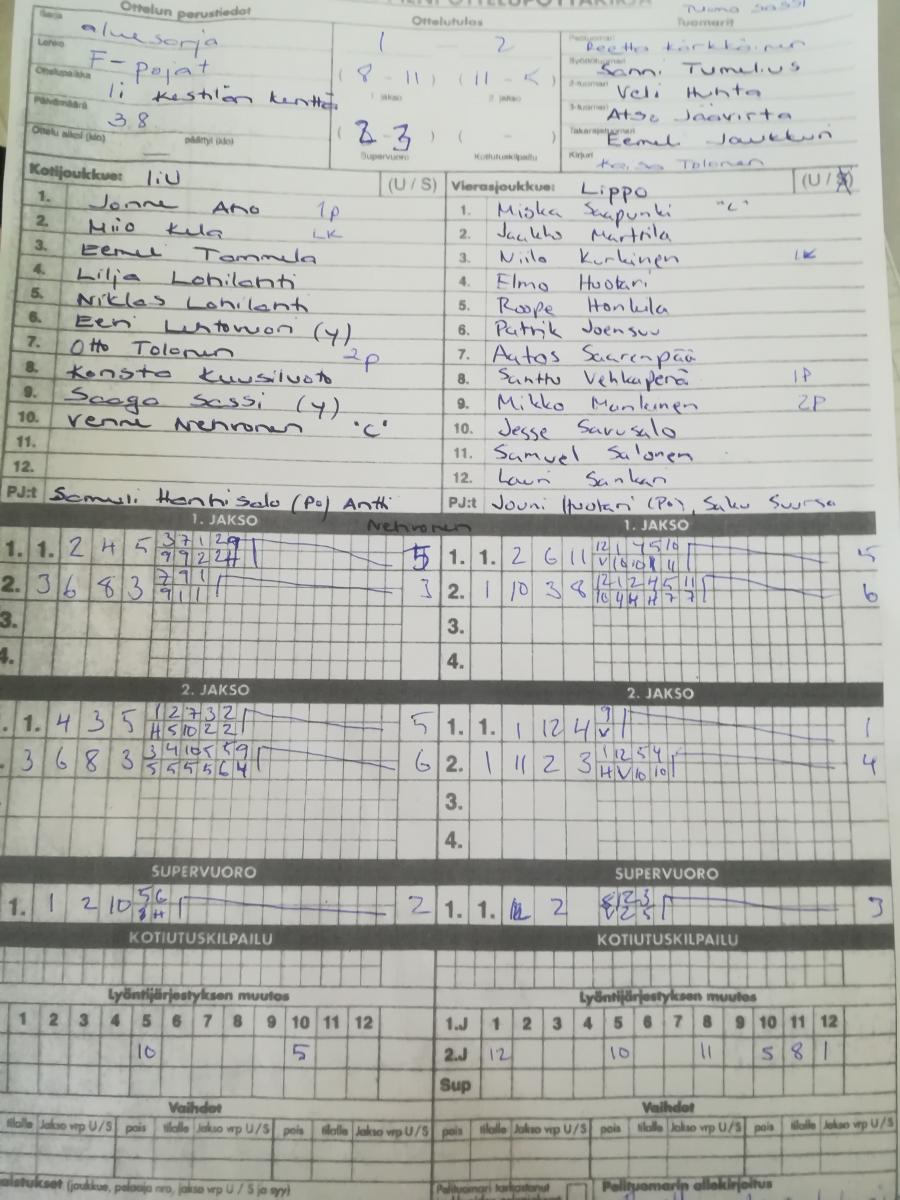 Ottelun perustiedot
Ottelutulos
Tuomarit
Sarja aluesarja
1 — 2
Lohko F-pojat
( 8 - 11 ) ( 11 - 5 )
1 jakso 2 jakso
Ottelupaikka Ii Kestilän kenttä
Päivämäärä 3.8
Ottelu alkoi (klo) päättyi (klo)
( 2 - 3 ) ( - )
Supervuoro Kotiutuskilpailu
Pelituomari Reetta Kärkkäinen
Syöttötuomari Sanni Tumelius
2-tuomari Veli Huhta
3-tuomari Atso Jäävirta
Takarajatuomari Eemel Jaukkuri
Kirjuri Kaisa Tolonen
Kotijoukkue: IiU (U / S)
1. Jonne Aho 1P
2. Miio Kela LK
3. Eemel Tammela
4. Lilja Lohilahti
5. Niklas Lohilahti
6. Eeri (y)
7. Otto Tolonen 2P
8. Konsta Kuusiluoto
9. Saaga Sassi (y)
10. Venni Nehronen "C"
11.
12.
PJ:t Samuli Hanhisalo (PO) Antti Nehronen
Vierasjoukkue: Lippo (U / S)
1. Miska Saapunki "C"
2. Jaakko Marttila
3. Niilo Kurkinen LK
4. Elmo Huotari
5. Roope Honkila
6. Patrik Joensuu
7. Aatos Saarenpää
8. Santtu Vehkaperä 1P
9. Mikko Mankinen 2P
10. Jesse Savusalo
11. Samuel Salonen
12. Lauri Sankari
PJ:t Jouni Huotari (PO), Saku Suorsa
1. JAKSO
1. 1. 2 4 5 5
2. 3 6 8 3 7 9 1 3
9 1 1
3.
4.
1. JAKSO
1. 1. 2 6 11 12 1 4 5 10 5
2. 1 10 3 8 12 1 2 4 5 11 6
10 4 H H 7 7
3.
4.
2. JAKSO
1. 4 3 5 1 2 7 3 2 5
H 5 10 2 2
3 6 8 3 3 4 10 5 5 9 6
5 5 5 5 6 4
2. JAKSO
1. 1. 1 12 4 9 1
V
2. 1 11 2 3 1 12 5 4 4
H V 10 10
3.
4.
SUPERVUORO
1. 1 2 10 5 6 2
8 H
SUPERVUORO
1. 1. 2 3
KOTIUTUSKILPAILU
KOTIUTUSKILPAILU
Lyöntijärjestyksen muutos
1 2 3 4 5 6 7 8 9 10 11 12
10 5
Lyöntijärjestyksen muutos
1.J 1 2 3 4 5 6 7 8 9 10 11 12
2.J 12 10 11 5 8 1
Sup
Vaihdot
tilalle Jakso vrp U/S pois tilalle Jakso vrp U/S pois tilalle Jakso vrp U/S
Vaihdot
pois tilalle Jakso vrp U/S pois tilalle Jakso vrp U/S pois tilalle Jakso vrp U/S
(joukkue, pelaaja nro, jakso vrp U / S ja syy)
Pelituomari tarkastanut
Pelituomarin allekirjoitus